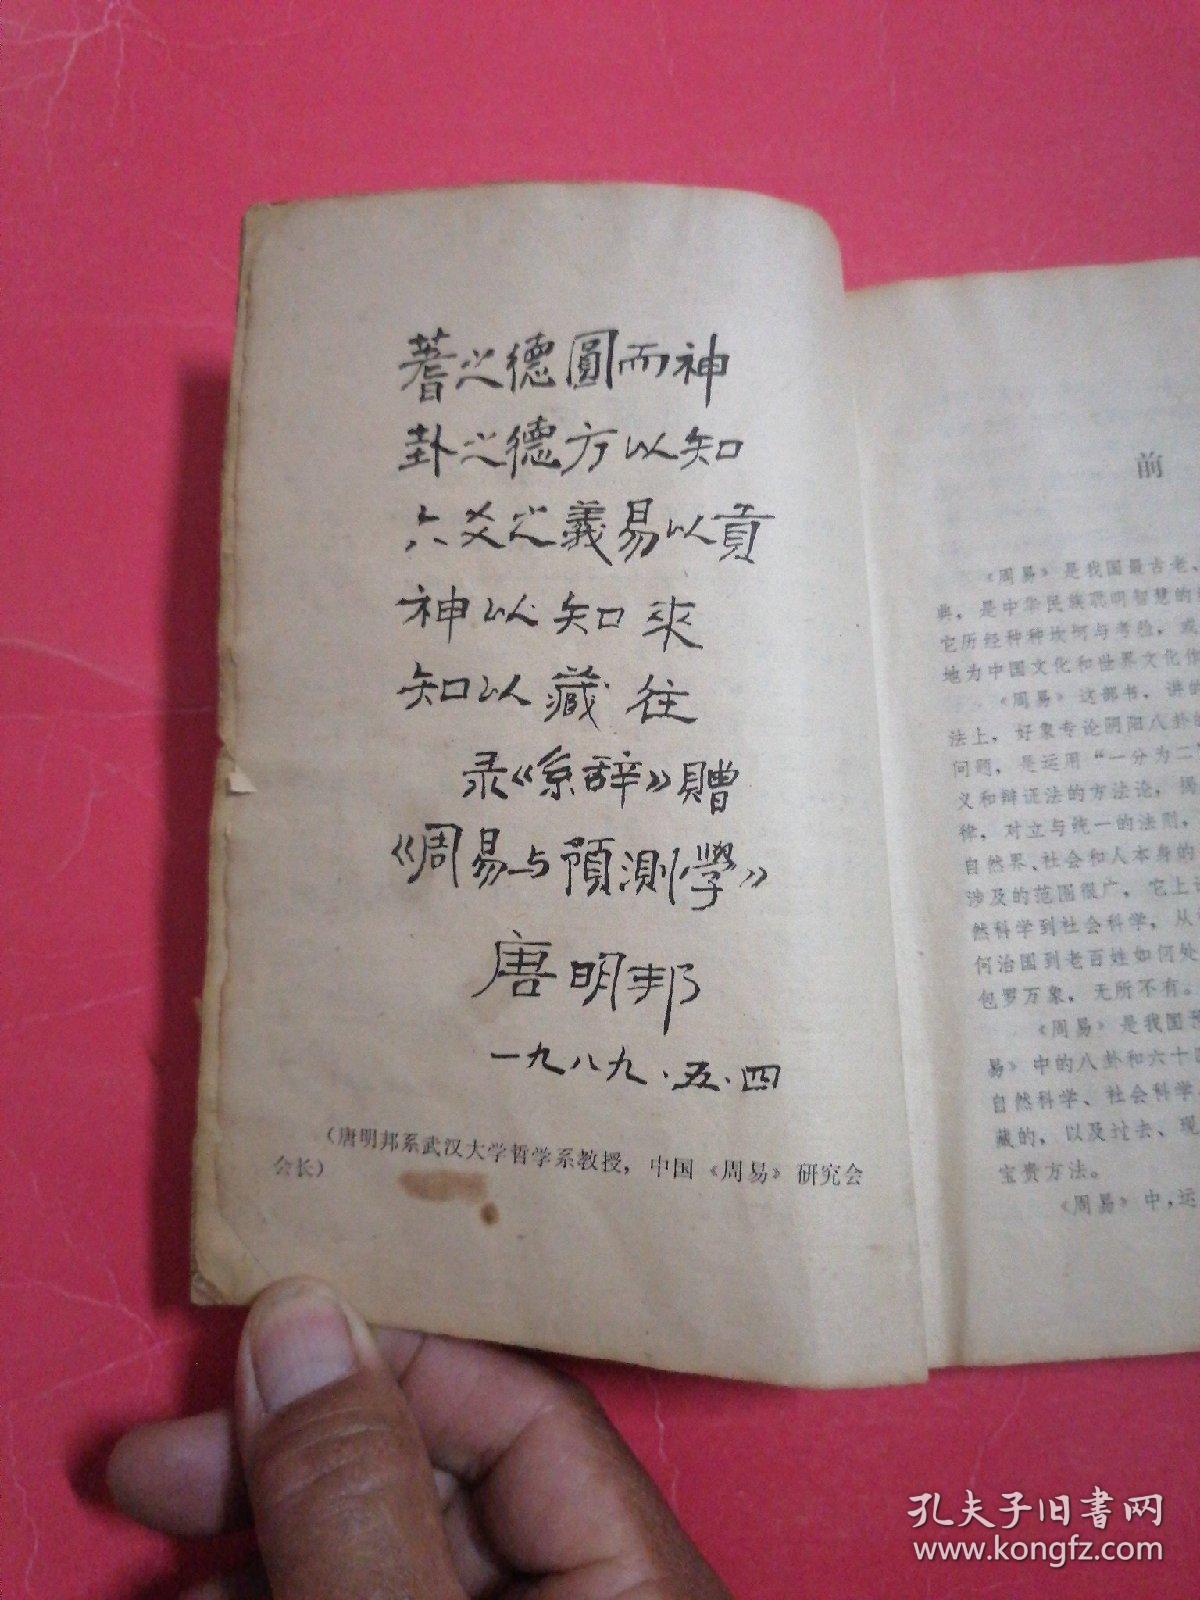 蓍之德圓而神
卦之德方以知
六爻之義易以貢
神以知來
知以藏往
录《系辞》贈
《周易与預測學》
唐明邦
一九八九·五·四
（唐明邦系武汉大学哲学系教授，中国《周易》研究会
会长）
前
《周易》是我国最古老、
典，是中华民族聪明智慧的
它历经种种坎坷与考验，或
地为中国文化和世界文化作
《周易》这部书，讲的
法上，好象专论阴阳八卦
问题，是运用“一分为二
义和辩证法的方法论，揭
律，对立与统一的法则，
自然界、社会和人本身的
涉及的范围很广，它上
然科学到社会科学，从
何治国到老百姓如何处
包罗万象，无所不有。
《周易》是我国
易》中的八卦和六十四
自然科学、社会科学
藏的，以及过去、现
宝贵方法。
《周易》中，运
孔夫子旧书网
www.kongfz.com